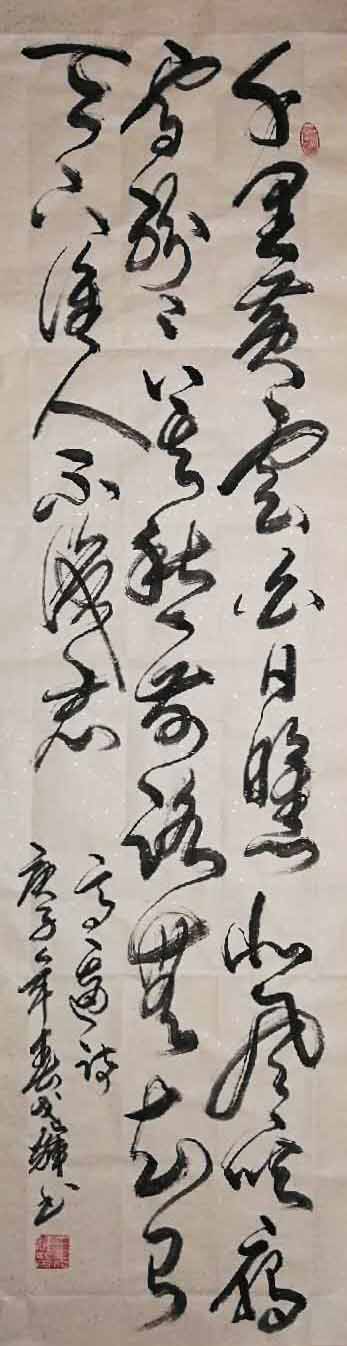 千里黃雲白日曛北風吹鴈
雪紛々莫愁前路無知己
天下誰人不識君
高適詩
庚子年春書